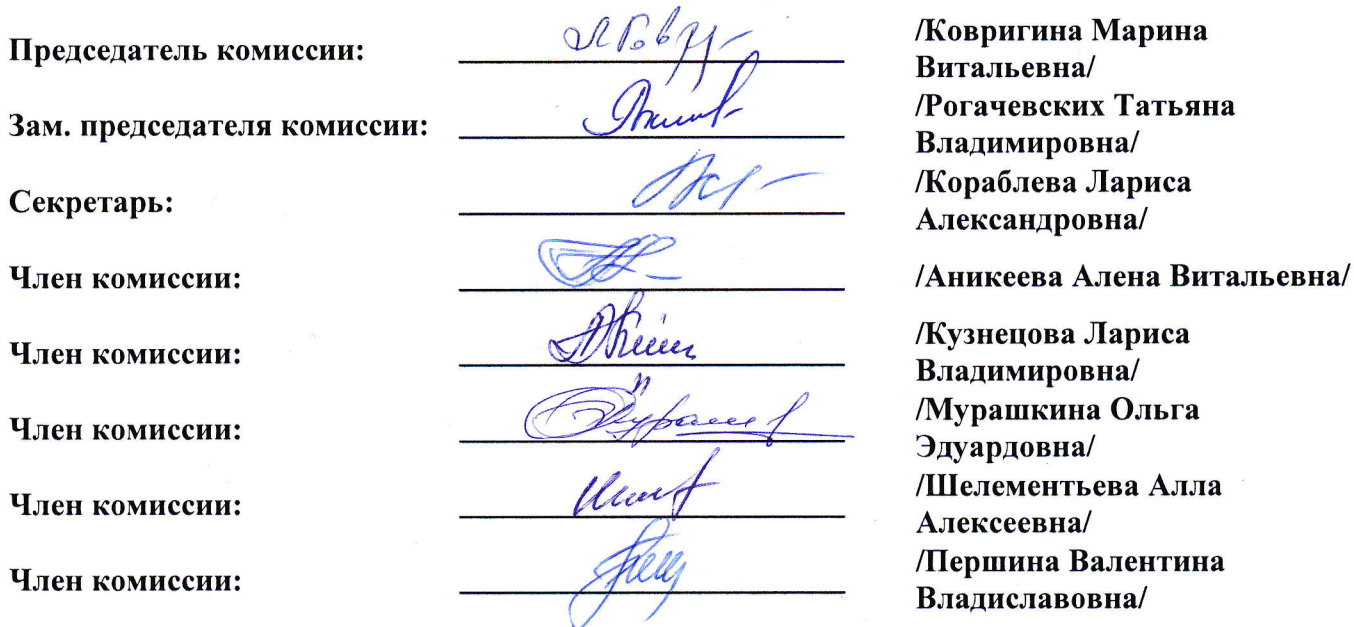 Председатель комиссии: /Ковригина Марина
Витальевна/
Зам. председателя комиссии: /Рогачевских Татьяна
Владимировна/
Секретарь: /Кораблева Лариса
Александровна/
Член комиссии: /Аникеева Алена Витальевна/
Член комиссии: /Кузнецова Лариса
Владимировна/
Член комиссии: /Мурашкина Ольга
Эдуардовна/
Член комиссии: /Шелементьева Алла
Алексеевна/
Член комиссии: /Першина Валентина
Владиславовна/